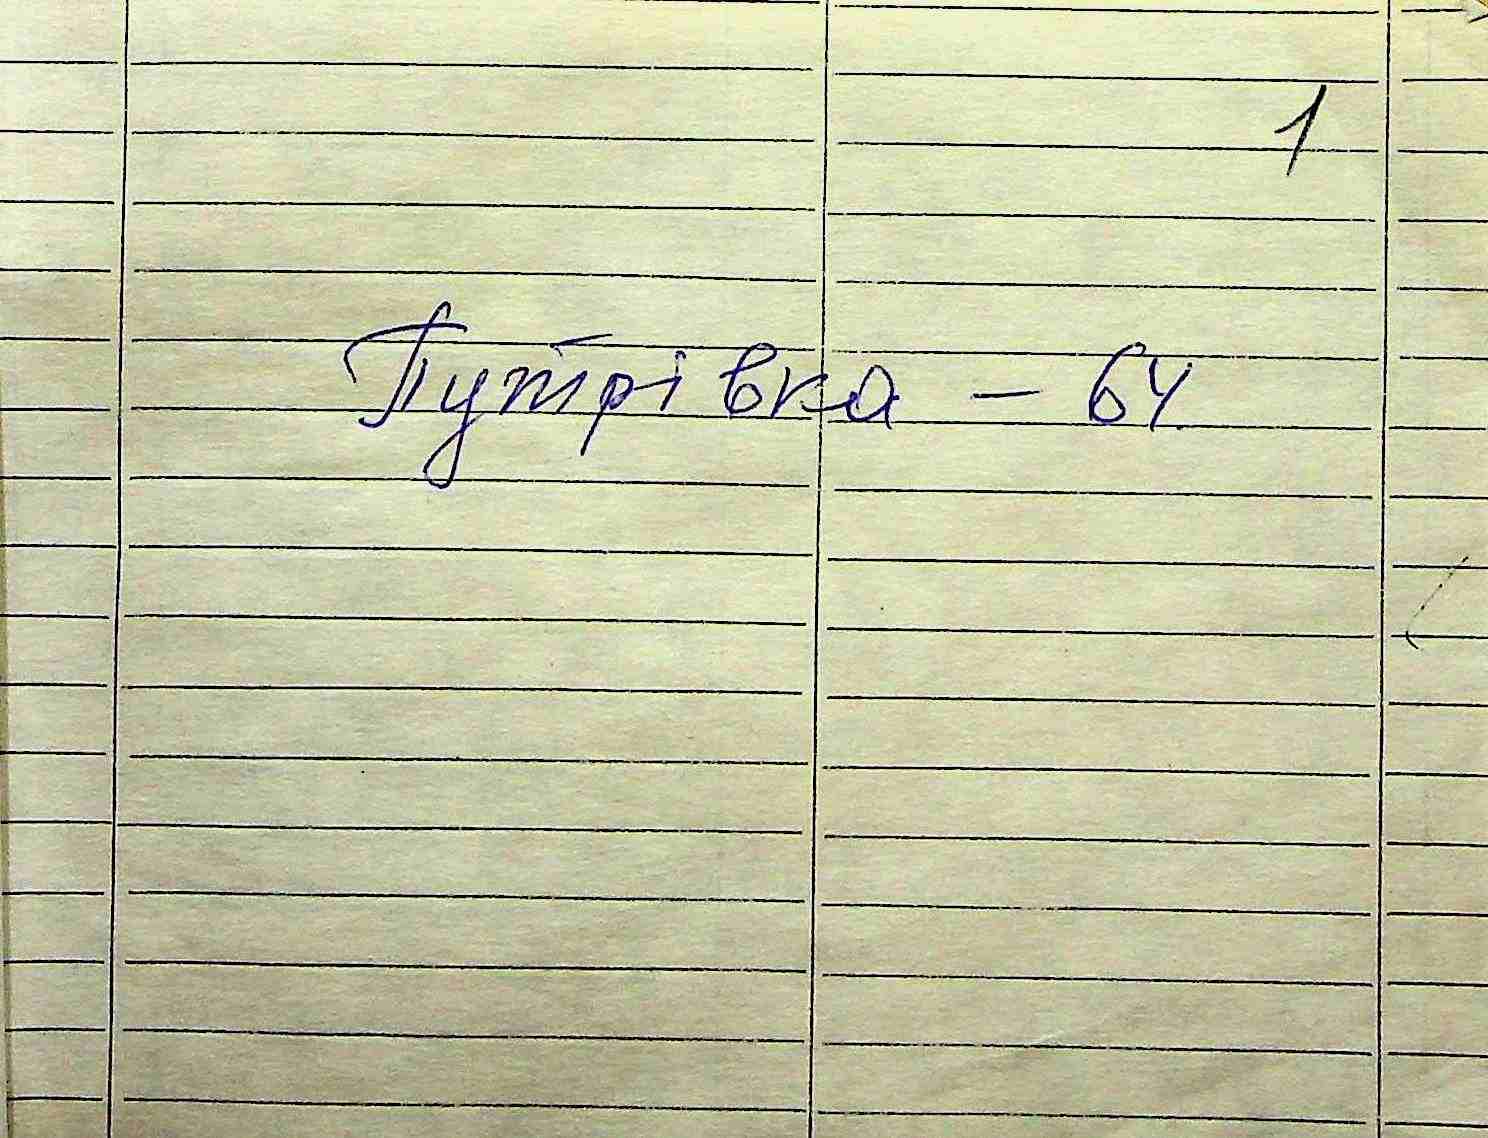 1
Путрівка - 64